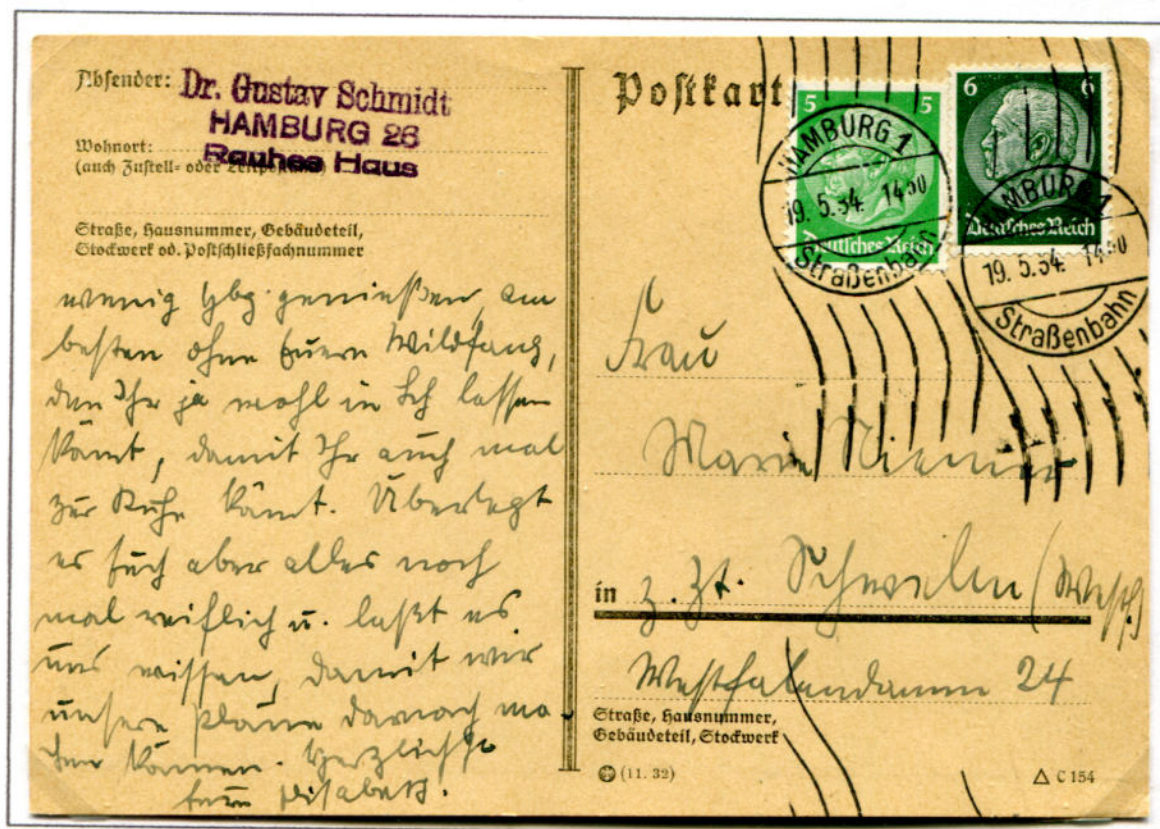 Absender: Dr. Gustav Schmidt
HAMBURG 26
Wohnort: Rauhes Haus
(auch Zustell- oder Leitpostamt)
Straße, Hausnummer, Gebäudeteil,
Stockwerk od. Postschließfachnummer
wenig Hbg. genießen, am
besten ohne Euern Wildfang,
den Ihr ja wohl in Sch lassen
könnt, damit Ihr auch mal
zur Ruhe kämt. Überlegt
es Euch aber alles noch
mal reiflich u. laßt es
uns wissen, damit wir
unsere Pläne darnach ma-
chen können. Herzlichst
Eure Elisabeth.
Postkarte
5 5
Deutsches Reich
6 6
Deutsches Reich
HAMBURG 1
19.5.34. 14 50
Straßenbahn
HAMBURG 1
19.5.34. 14 50
Straßenbahn
Frau
Marie Niemeier
in z. Zt. Schwelm (Westf)
Westfalendamm 24
Straße, Hausnummer,
Gebäudeteil, Stockwerk
(11. 32)
△ C 154